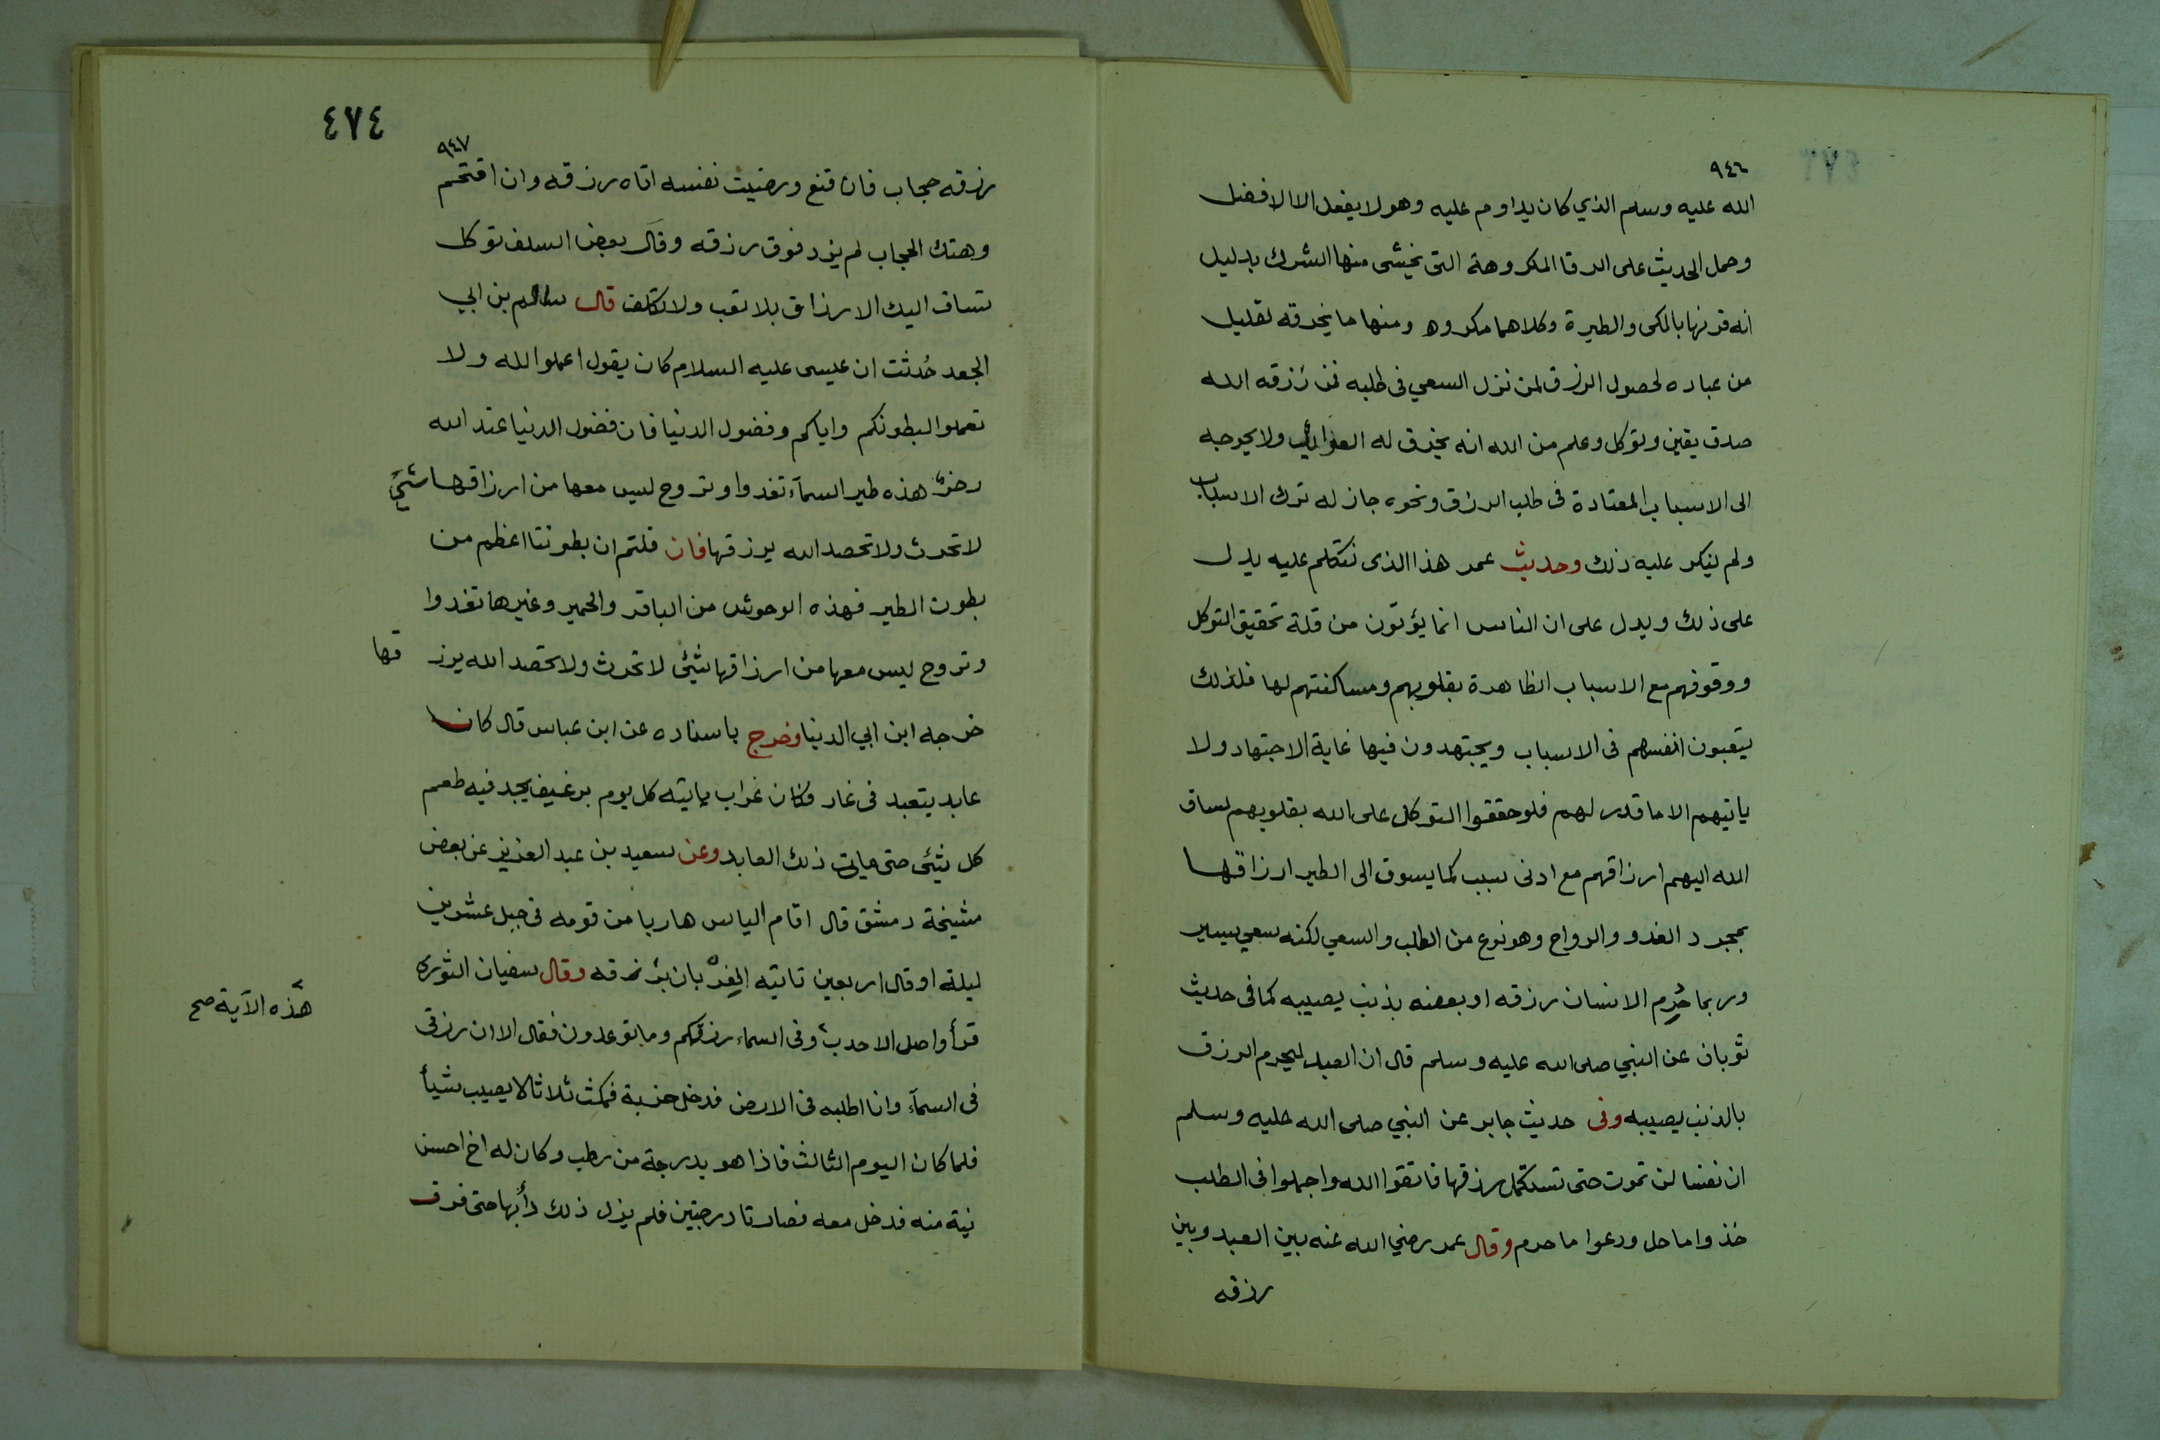 ٩٤٦
الله عليه وسلم الذي كان يداوم عليه وهو لا يفعل الا الافضل
وحمل الحديث على الرقا المكروهة التى يخشى منها الشرك بدليل
انه قرنها بالكى والطيرة وكلاهما مكروه ومنها ما يخرقه لقليل
من عباده لحصول الرزق لمن نزل السعي فى طلبه فمن رزقه الله
صدق يقين وتوكل وعلم من الله انه يخرق له العوائد ولا يحوجه
الى الاسباب المعتادة فى طلب الرزاق ونحوه جاز له ترك الاسباب
ولم ينكر عليه ذلك وحديث عمر هذا الذى نتكلم عليه يدل
على ذلك ويدل على ان الناس انما يؤتون من قلة تحقيق التوكل
ووقوفهم مع الاسباب الظاهرة بقلوبهم ومساكنتهم لها فلذلك
يتعبون انفسهم فى الاسباب ويجتهدون فيها غاية الاجتهاد ولا
ياتيهم الا ما قدر لهم فلو حققوا التوكل على الله بقلوبهم لساق
الله اليهم ارزاقهم مع ادنى سبب كما يسوق الى الطير ارزاقها
بمجرد الغدو والرواح وهو نوع من الطلب والسعي لكنه سعي يسير
وربما حُرِم الانسان رزقه او بعضه بذنب يصيبه كما فى حديث
ثوبان عن النبي صلى الله عليه وسلم قال ان العبد ليحرم الرزق
بالذنب يصيبه وفى حديث جابر عن النبي صلى الله عليه وسلم
ان نفسا لن تموت حتى تستكمل رزقها فاتقوا الله واجملوا فى الطلب
خذوا ما حل ودعوا ما حرم وقال عمر رضي الله عنه بين العبد وبين
رزقه
٤٧٤
٩٤٧
رزقه حجاب فان قنع ورضيت نفسه اتاه رزقه وان اقتحم
وهتك الحجاب لم يزد فوق رزقه وقال بعض السلف توكل
تساق اليك الارزاق بلا تعب ولا تكلف قال سالم بن ابي
الجعد حُدثت ان عيسى عليه السلام كان يقول اعملوا لله ولا
تعملوا لبطونكم واياكم وفضول الدنيا فان فضول الدنيا عند الله
رجز هذه طير السمآء تغدوا وتروح ليس معها من ارزاقها شيئ
لا تحرث ولا تحصد الله يرزقها فان قلتم ان بطوننا اعظم من
بطون الطير فهذه الوحوش من الباقر والحمير وغيرها تغدوا
وتروح ليس معها من ارزاقها شيئ لا تحرث ولا تحصد الله يرزقها
خرجه ابن ابي الدنيا وخرج باسناده عن ابن عباس قال كان
عابد يتعبد فى غار وكان غراب ياتيه كل يوم برغيف يجد فيه طعم
كل شيئ حتى مات ذلك العابد وعن سعيد بن عبد العزيز عن بعض
مشيخة دمشق قال اقام الياس هاربا من قومه فى جبل عشرين
ليلة او قال اربعين تاتيه الغربان برزقه وقال سفيان الثورى
قرأ واصل الاحدب وفى السماء رزقكم وما توعدون فقال الا ان رزقى
هذه الآية صح
فى السمآء وانا اطلبه فى الارض فدخل خربة فمكث ثلاثا لا يصيب شيأ
فلما كان اليوم الثالث فاذا هو بدرجة من رطب وكان له اخ احسن
نية منه فدخل معه فصارتا درجتين فلم يزل ذلك دأبها حتى فرق